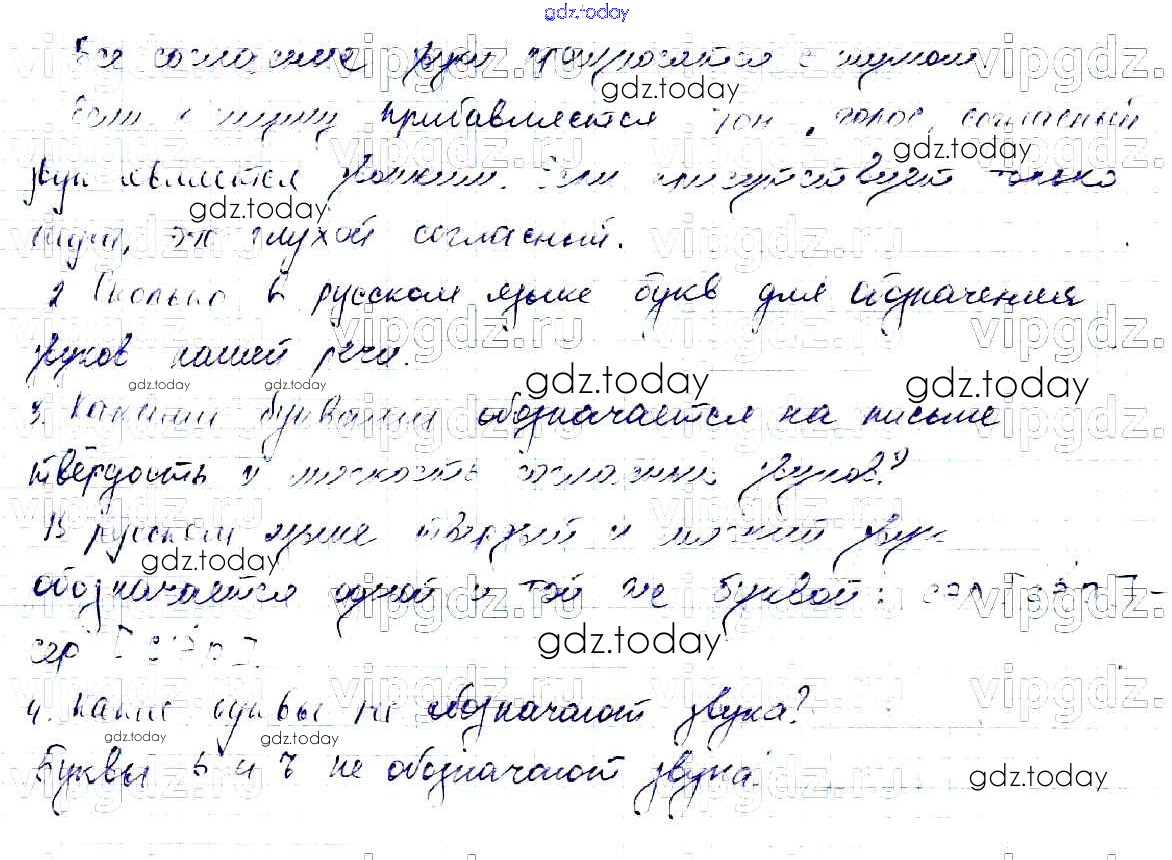 gdz.today
Все согласные звуки произносятся с шумом.
Если к шуму прибавляется тон, голос, согласный
звук является звонким. Если присутствует только
шум, это глухой согласный.
2 Сколько в русском языке букв для обозначения
звуков нашей речи.
3. Какими буквами обозначается на письме
твёрдость и мягкость согласных звуков?
В русском языке твердый и мягкий звук
обозначается одной и той же буквой:
4. Какие буквы не обозначают звука?
Буквы ь и ъ не обозначают звука.